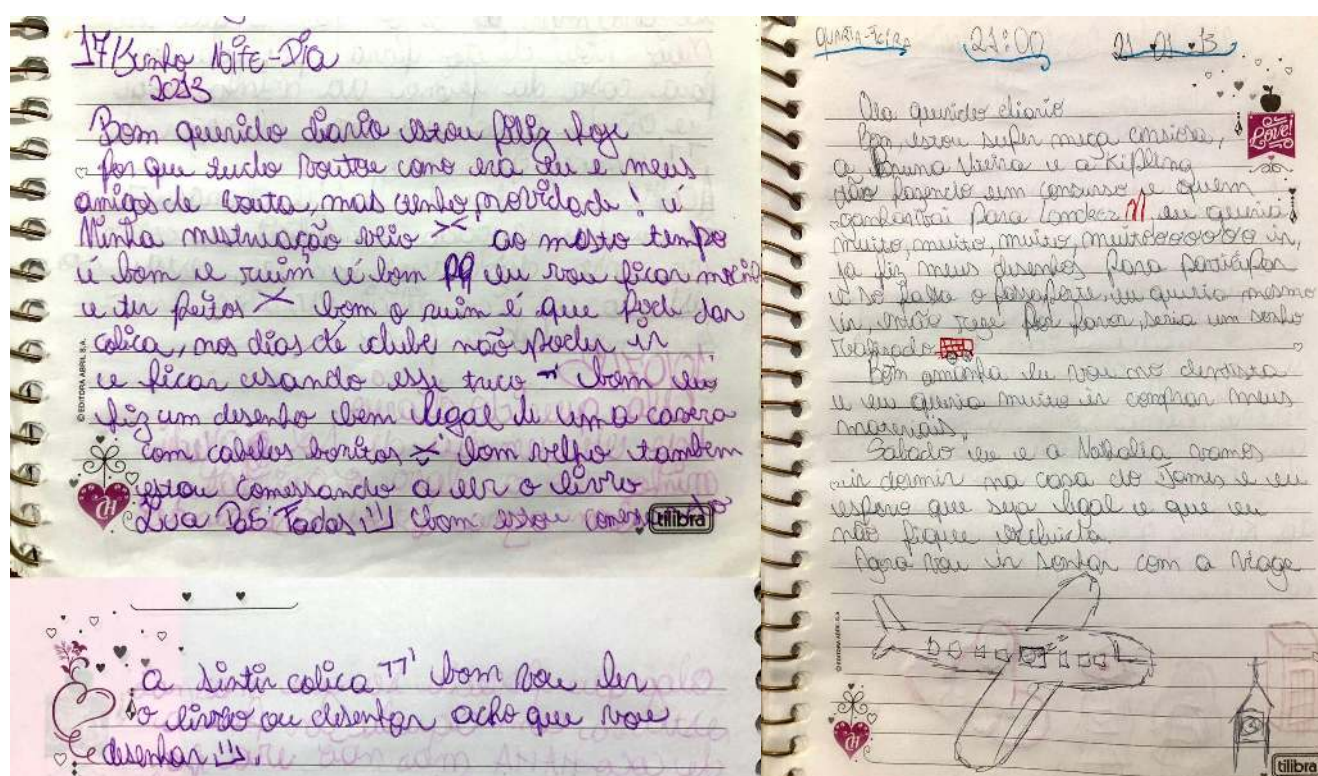 17/Junho Noite-Dia
2013
Bom querido diario estou filiz hoje
por que tudo voutou como era eu e meus
amigos de vouta, mas tenho novidade! é
Minha mestruação veio >< ao mesto tempo
é bom e ruim é bom pq eu vou ficar mocinha
e ter peitos >< bom o ruim é que pode dar
colica, nos dias de clube não poder ir
e ficar usando esse truco bom eu
fiz um desenho bem legal de uma caveira
com cabelos bonitos bom velho também
estou comessando a ler o livro
Lua Das Fadas bom estou comessando
© EDITORA ABRIL S.A.
tilibra
a sintir colica bom vou ler
o livro ou desenhar acho que vou
desenhar
QUARTA-FEIRA 21:00 21.01.13
Ola querido diario
Bom, estou super mega ansiosa,
a Bruna Vieira e a Kipling
tão fazendo um concurso e quem
ganhar vai para Londres eu queria
muito, muito, muito, muitoooooooo ir,
ja fiz meus desenhos para participar
e só falta o passaporte, eu queria mesmo
ir, então reze por favor, seria um sonho
realizado
Bom amanha eu vou no dentista
e eu queria muito ir comprar meus
materiais.
Sabado eu e a Nathalia vamos
ir dormir na casa do James e eu
espero que seja legal e que eu
não fique excluida.
Agora vou ir sonhar com a viage
Love!
© EDITORA ABRIL S.A.
tilibra